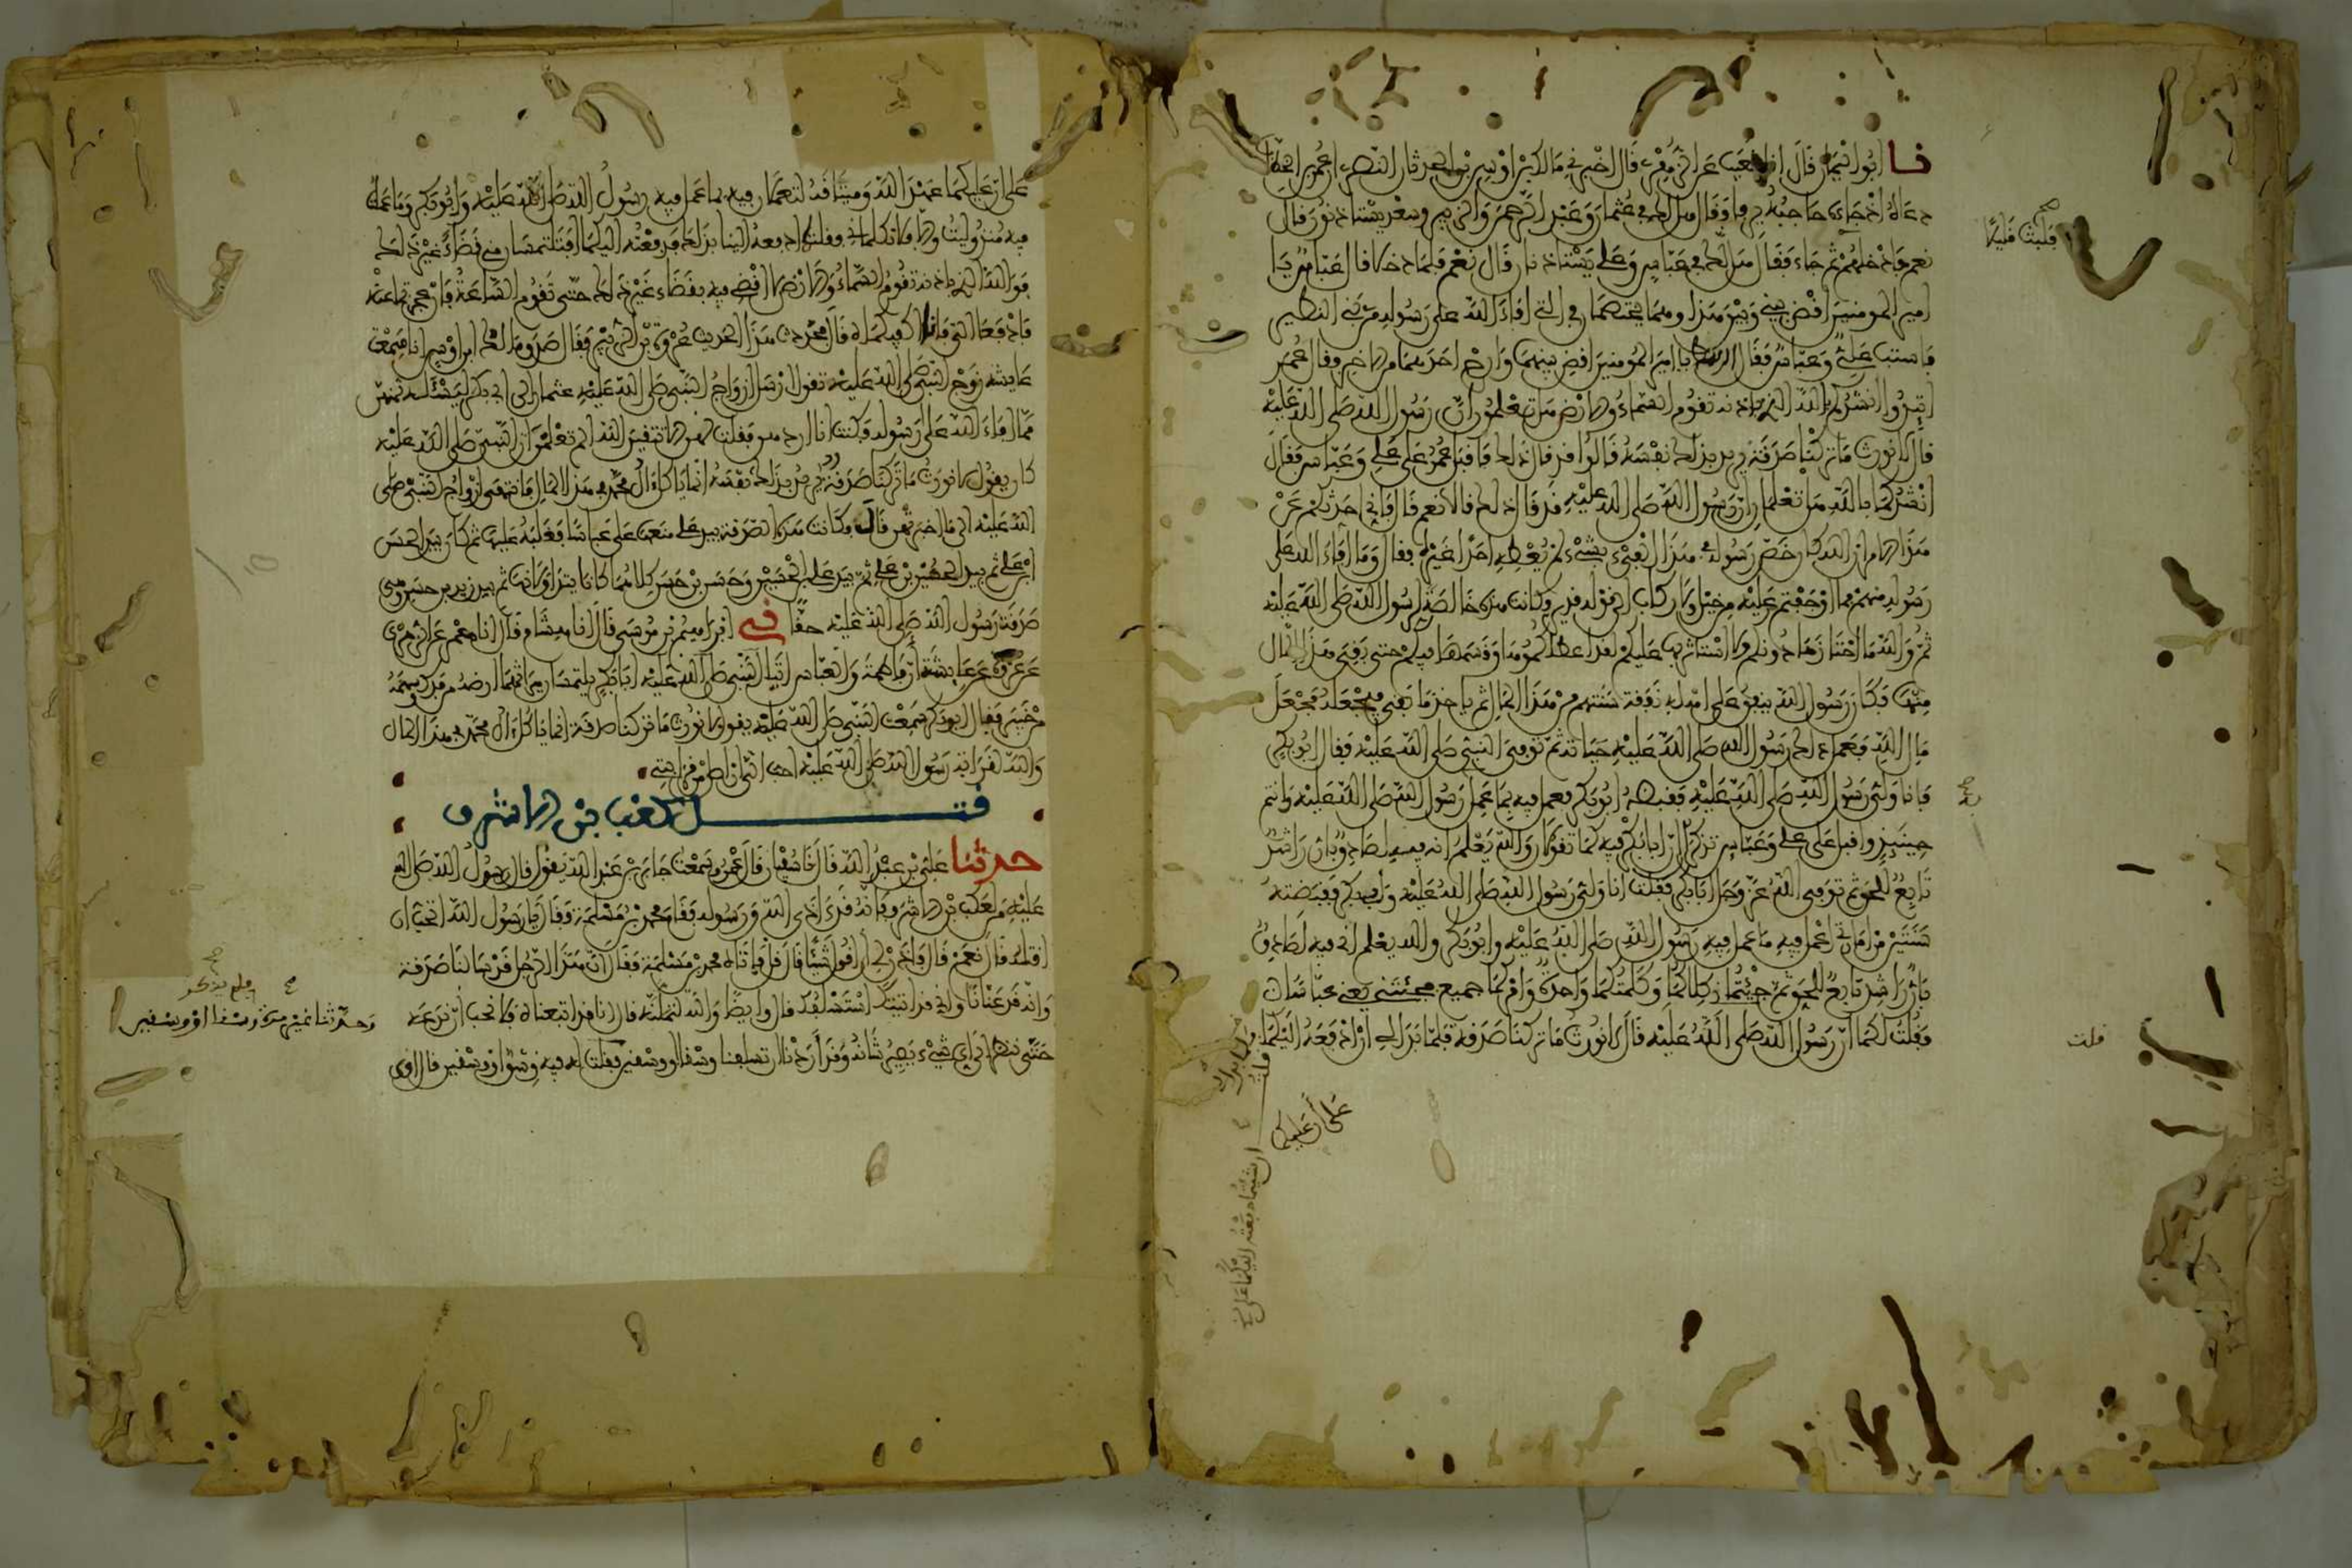 نا ابو اليمان قال انا شعيب عن الزهري قال اخبرني مالك بن اوس بن الحدثان النصري ان عمر بن الخطاب
دعاه اذ جاءه حاجبه يرفا وقال هل لك في عثمان وعبد الرحمن والزبير وسعد يستاذنون قال
نعم فادخلهم ثم جاء فقال هل لك في عباس وعلي يستاذنان قال نعم فلما دخلا قال عباس يا
فلبث قليلا
امير المومنين اقض بيني وبين هذا وهما يختصمان في التي افاء الله على رسوله من بني النضير
فاستب علي وعباس فقال الرهط يا امير المومنين اقض بينهما وارح احدهما من الاخر فقال عمر
اتيدوا انشدكم بالله الذي باذنه تقوم السماء والارض هل تعلمون ان رسول الله صلى الله عليه
قال لا نورث ما تركنا صدقة يريد بذلك نفسه قالوا قد قال ذلك فاقبل عمر على علي وعباس فقال
انشدكما بالله هل تعلمان ان رسول الله صلى الله عليه قد قال ذلك قالا نعم قال فاني احدثكم عن
هذا الامر ان الله كان خص رسوله في هذا الفيء بشيء لم يعطه احدا غيره فقال وما افاء الله على
رسوله منهم فما اوجفتم عليه من خيل ولا ركاب الى قوله قدير وكانت هذه خالصة لرسول الله صلى الله عليه
ثم والله ما احتازها دونكم ولا استاثر بها عليكم لقد اعطاكموها وقسمها فيكم حتى بقي هذا المال
منها فكان رسول الله ينفق على اهله نفقة سنتهم من هذا المال ثم ياخذ ما بقي فيجعله مجعل
مال الله فعمل ذلك رسول الله صلى الله عليه حياته ثم توفي النبي صلى الله عليه فقال ابو بكر
فانا ولي رسول الله صلى الله عليه فقبضه ابو بكر فعمل فيه بما عمل رسول الله صلى الله عليه وانتم
حينئذ واقبل على علي وعباس تذكران ان ابا بكر فيه كما تقولان والله يعلم انه فيه لصادق بار راشد
تابع للحق ثم توفى الله عز وجل ابا بكر فقلت انا ولي رسول الله صلى الله عليه وابي بكر فقبضته
سنتين من امارتي اعمل فيه ما عمل فيه رسول الله صلى الله عليه وابو بكر والله يعلم اني فيه لصادق
بار راشد تابع للحق ثم جئتماني كلاكما وكلمتكما واحدة وامركما جميع فجئتني يعني عباسا
فقلت لكما ان رسول الله صلى الله عليه قال لا نورث ما تركنا صدقة فلما بدا لي ان ادفعه اليكما
قلت
على ان عليكما
ان شئتما دفعته اليكما على
على ان عليكما عهد الله وميثاقه لتعملان فيه بما عمل فيه رسول الله صلى الله عليه وابو بكر وما عملت
فيه منذ وليت والا فلا تكلماني فقلتما ادفعه الينا بذلك فدفعته اليكما افتلتمسان مني قضاء غير ذلك
فوالله الذي باذنه تقوم السماء والارض لا اقضي فيه بقضاء غير ذلك حتى تقوم الساعة فان عجزتما عنه
فادفعا الي فانا اكفيكماه قال فحدثت هذا الحديث عروة بن الزبير فقال صدق مالك بن اوس انا سمعت
عايشة زوج النبي صلى الله عليه تقول ارسل ازواج النبي صلى الله عليه عثمان الى ابي بكر يسئلنه ثمنهن
مما افاء الله على رسوله فكنت انا اردهن فقلت لهن الا تتقين الله الم تعلمن ان النبي صلى الله عليه
كان يقول لا نورث ما تركنا صدقة يريد بذلك نفسه انما ياكل ال محمد في هذا المال فانتهى ازواج النبي صلى
الله عليه الى ما اخبرتهن قال فكانت هذه الصدقة بيد علي منعها علي عباسا فغلبه عليها ثم كان بيد الحسن
ابن علي ثم بيد الحسين بن علي ثم بيد علي بن الحسين وحسن بن حسن كلاهما كانا يتداولانها ثم بيد زيد بن حسن وهي
صدقة رسول الله صلى الله عليه حقا نى ابراهيم بن موسى قال انا هشام قال انا معمر عن الزهري
عن عروة عن عايشة ان فاطمة والعباس اتيا النبي صلى الله عليه ابا بكر يلتمسان ميراثهما ارضه من فدك وسهمه
من خيبر فقال ابو بكر سمعت النبي صلى الله عليه يقول لا نورث ما تركنا صدقة انما ياكل ال محمد في هذا المال
والله لقرابة رسول الله صلى الله عليه احب الي ان اصل من قرابتي
قتل كعب بن الاشرف
حدثنا علي بن عبد الله قال نا سفين قال عمرو سمعت جابر بن عبد الله يقول قال رسول الله صلى الله
عليه من لكعب بن الاشرف فانه قد اذى الله ورسوله فقام محمد بن مسلمة فقال يا رسول الله اتحب ان
اقتله قال نعم قال فاذن لي ان اقول شيئا قال قل فاتاه محمد بن مسلمة فقال ان هذا الرجل قد سالنا صدقة
وانه قد عنانا واني قد اتيتك استسلفك قال وايضا والله لتملنه قال انا قد اتبعناه فلا نحب ان ندعه
حتى ننظر الى اي شيء يصير شانه وقد اردنا ان تسلفنا وسقا او وسقين فقلت له فيه وسقا او وسقين قال ارى
وحدثنا غير مرة فلم يذكر وسقا او وسقين